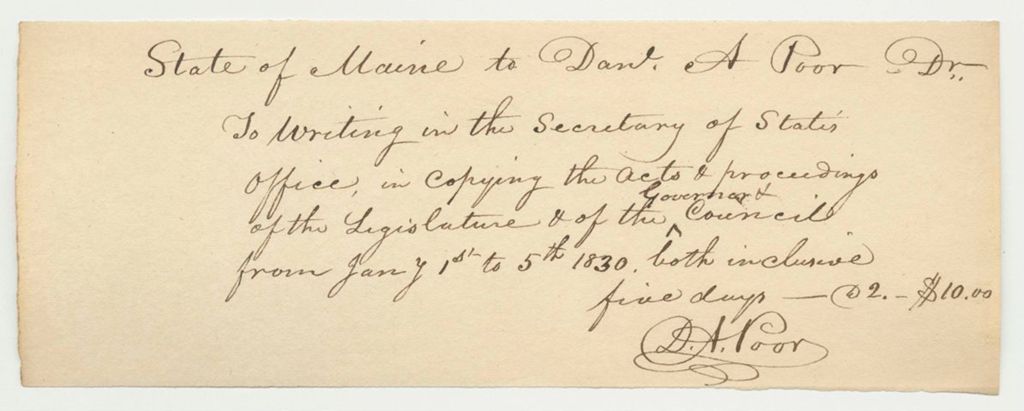 State of Maine to Danl. A Poor Dr.
To Writing in the Secretary of State's
Office, in copying the acts & proceedings
of the Legislature & of the ^ Governor & Council
from Jany 1st to 5th 1830. both inclusive
five days — @ 2. – $10.00
D. A. Poor